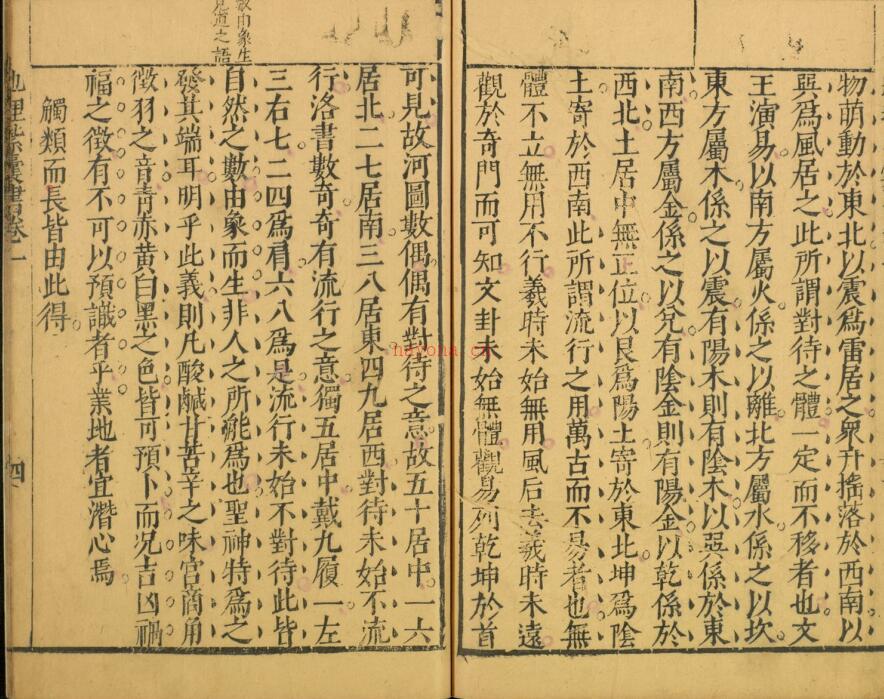 物萌動於東北以震爲雷居之衆卉搖落於西南以
巽爲風居之此所謂對待之體一定而不移者也文
王演易以南方屬火係之以離北方屬水係之以坎
東方屬木係之以震有陽木則有陰木以巽係於東
南西方屬金係之以兌有陰金則有陽金以乾係於
西北土居中無正位以艮爲陽土寄於東北坤爲陰
土寄於西南此所謂流行之用萬古而不易者也無
體不立無用不行羲時未始無用風后去羲時未遠
觀於奇門而可知文卦未始無體觀易列乾坤於首
可見故河圖數偶偶有對待之意故五十居中一六
居北二七居南三八居東四九居西對待未始不流
行洛書數奇奇有流行之意獨五居中戴九履一左
三右七二四爲肩六八爲是流行未始不對待此皆
自然之數由象而生非人之所能爲也聖神特爲之
發其端耳明乎此義則凡酸鹹甘苦辛之味宮商角
徵羽之音青赤黃白黑之色皆可預卜而况吉凶禍
福之徵有不可以預識者乎業地者宜潛心焉
觸類而長皆由此得
數由象生
見道之語
地理紫囊書卷一
四